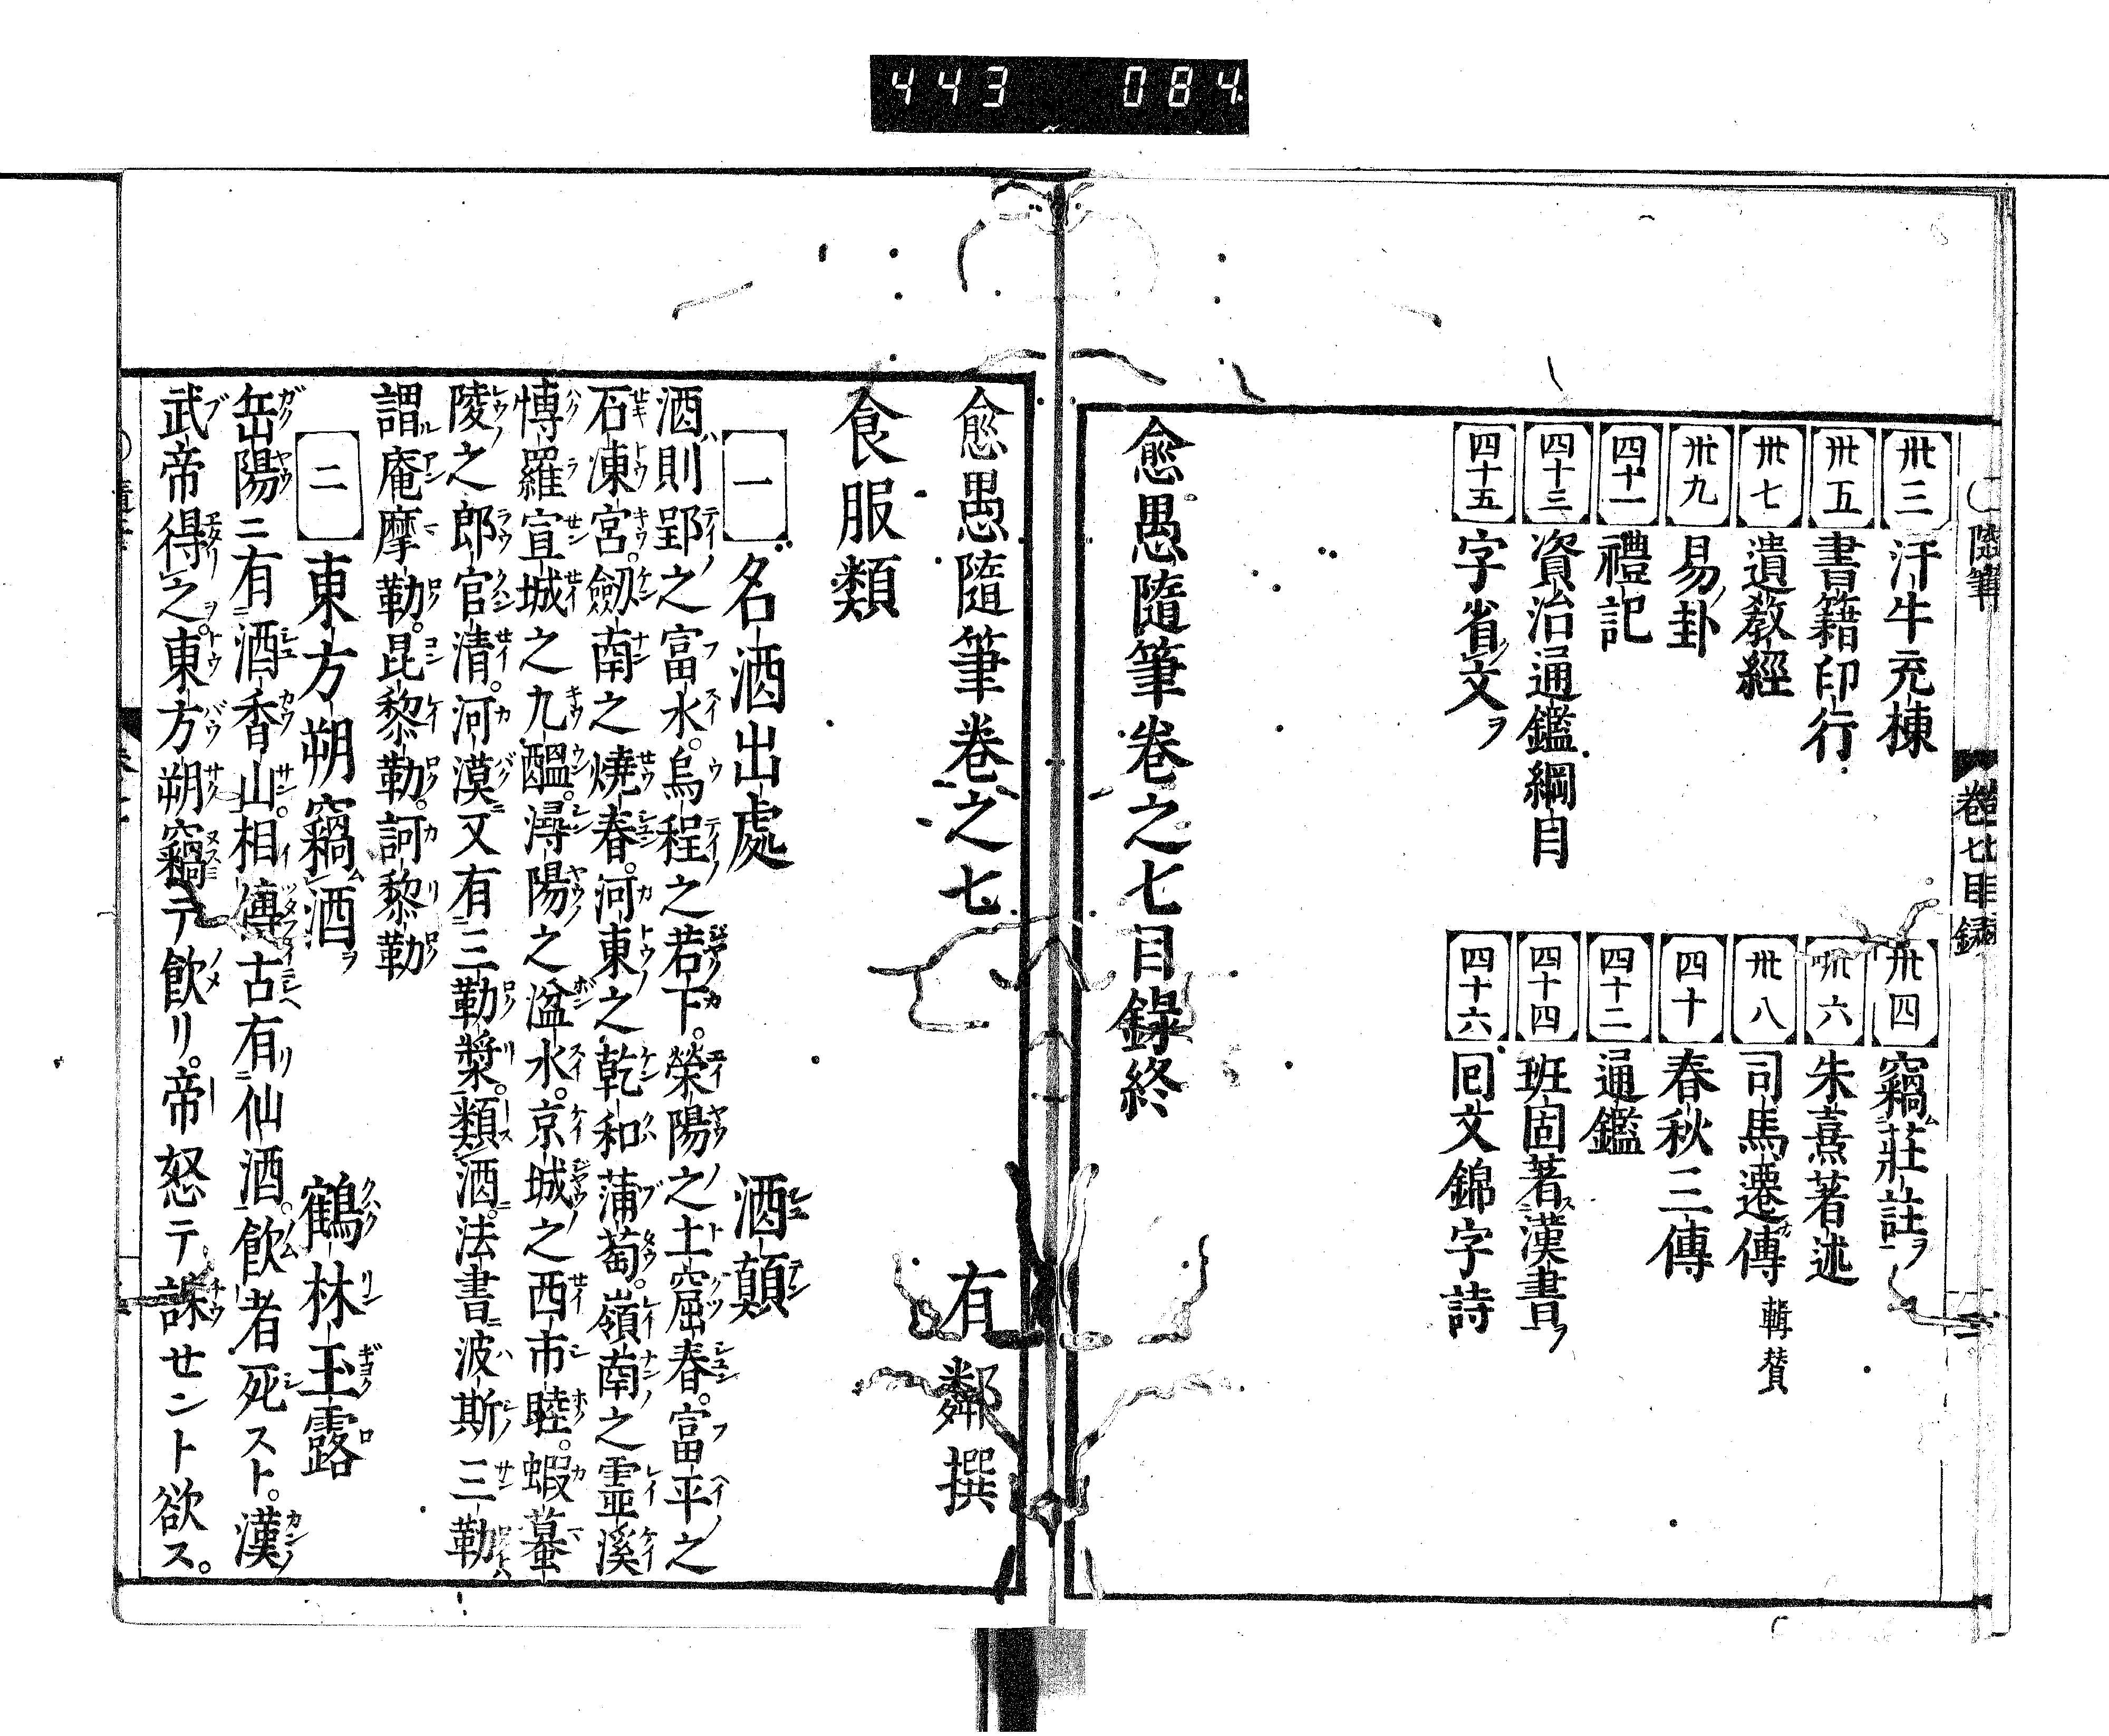 443 084
卅三 汗牛充棟
卅四 竊莊註ヲ
卅五 書籍印行
卅六 朱熹著述
卅七 遺敎經
卅八 司馬遷傳 輯賛
卅九 易ノ卦
四十 春秋三傳
四十一 禮記
四十二 通鑑
四十三 資治通鑑綱目
四十四 班固著ス漢書ヲ
四十五 字省ク文ヲ
四十六 回文錦字詩
愈愚隨筆卷之七目錄終
愈愚隨筆卷之七
有鄰撰
食服類
一 名酒出處 酒顛
酒則郢之富水。烏程之若下。滎陽之土窟春。富平之
石凍宮。劔南之燒春。河東之乾和蒲萄。嶺南之霊溪
博羅宜城之九醞。潯陽之湓水。京城之西市䏮。蝦蟇
陵之郎官清。河漠又有三勒漿。類酒。法書波斯三勒
謂庵摩勒。昆黎勒。訶黎勒
二 東方朔竊ム酒ヲ 鶴林玉露
岳陽ニ有酒香山。相傳古有仙酒。飲者死スト。漢
武帝得之。東方朔竊テ飲リ。帝怒テ誅せント欲ス。
隨筆
卷七目録